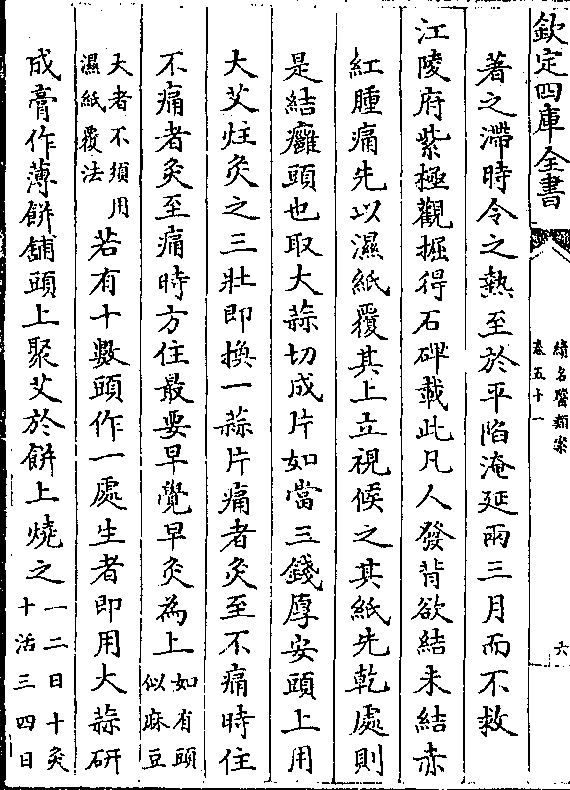 欽定四庫全書
續名醫類案
卷五十一
六
著之滯時令之熱至於平陷淹延兩三月而不救
江陵府紫極觀掘得石碑載此凡人發背欲結未結赤
紅腫痛先以濕紙覆其上立視候之其紙先乾處則
是結癰頭也取大蒜切成片如當三錢厚安頭上用
大艾炷灸之三壯即換一蒜片痛者灸至不痛時住
不痛者灸至痛時方住最要早覺早灸為上如有頭
似麻豆
大者不須用
濕紙覆法
若有十數頭作一處生者即用大蒜研
成膏作薄餅鋪頭上聚艾於餅上燒之一二日十灸
十活三四日